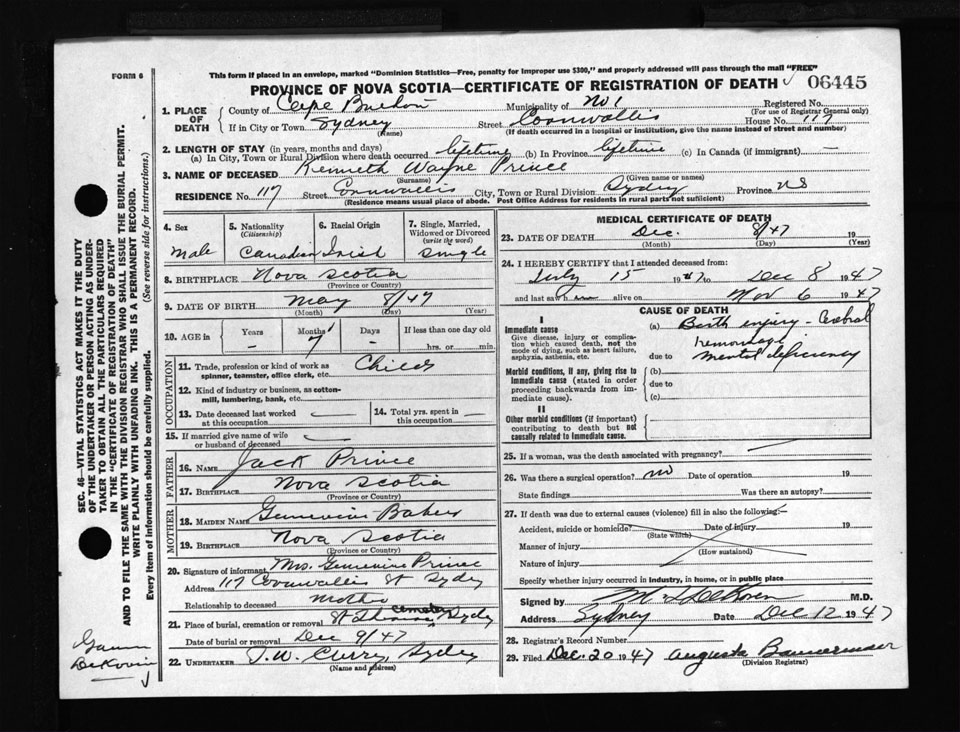 FORM 6
This form if placed in an envelope, marked "Dominion Statistics—Free, penalty for improper use $300," and properly addressed will pass through the mail "FREE"
PROVINCE OF NOVA SCOTIA—CERTIFICATE OF REGISTRATION OF DEATH 06445
1. PLACE OF DEATH
County of Cape Breton Municipality of No 1 Registered No.
(For use of Registrar General only)
If in City or Town Sydney Street Cornwallis House No. 117
(Name) (If death occurred in a hospital or institution, give the name instead of street and number)
2. LENGTH OF STAY (in years, months and days)
(a) In City, Town or Rural Division where death occurred lifetime (b) In Province lifetime (c) In Canada (if immigrant) —
3. NAME OF DECEASED Kenneth Wayne Prince
(Surname) (Given name or names)
RESIDENCE No. 117 Street Cornwallis City, Town or Rural Division Sydney Province NS
(Residence means usual place of abode. Post Office Address for residents in rural parts not sufficient)
4. Sex
Male
5. Nationality
(Citizenship)
Canadian
6. Racial Origin
Irish
7. Single, Married, Widowed or Divorced
(write the word)
Single
8. BIRTHPLACE Nova Scotia
(Province or Country)
9. DATE OF BIRTH May 8/47
(Month) (Day) (Year)
10. AGE in Years Months Days If less than one day old
- 7 - hrs. or min.
OCCUPATION
11. Trade, profession or kind of work as spinner, teamster, office clerk, etc. Child
12. Kind of industry or business, as cotton-mill, lumbering, bank, etc.
13. Date deceased last worked at this occupation
14. Total yrs. spent in this occupation
15. If married give name of wife or husband of deceased
FATHER
16. NAME Jack Prince
17. BIRTHPLACE Nova Scotia
(Province or Country)
MOTHER
18. MAIDEN NAME Genevieve Baker
19. BIRTHPLACE Nova Scotia
(Province or Country)
20. Signature of informant Mrs. Genevieve Prince
Address 117 Cornwallis St Sydney
Relationship to deceased Mother
21. Place of burial, cremation or removal cemetery Sydney
Date of burial or removal Dec 9/47
22. UNDERTAKER T.W. Curry, Sydney
(Name and address)
MEDICAL CERTIFICATE OF DEATH
23. DATE OF DEATH Dec. 8/47 19
(Month) (Day) (Year)
24. I HEREBY CERTIFY that I attended deceased from:
July 15 1947 to Dec 8 1947
and last saw h im alive on Nov 6 1947
CAUSE OF DEATH
I
Immediate cause
Give disease, injury or complication which caused death, not the mode of dying, such as heart failure, asphyxia, asthenia, etc.
(a) Birth injury - Cerebral
hemorrhage
due to mental deficiency
Morbid conditions, if any, giving rise to immediate cause (stated in order proceeding backwards from immediate cause).
(b)
due to
(c)
II
Other morbid conditions (if important) contributing to death but not causally related to immediate cause.
25. If a woman, was the death associated with pregnancy?
26. Was there a surgical operation? no Date of operation 19
State findings Was there an autopsy?
27. If death was due to external causes (violence) fill in also the following:
Accident, suicide or homicide? Date of injury 19
(State which)
Manner of injury
(How sustained)
Nature of injury
Specify whether injury occurred in industry, in home, or in public place
Signed by M.D.
Address Sydney Date Dec 12 1947
28. Registrar's Record Number
29. Filed Dec. 20 1947 Augusta
(Division Registrar)
SEC. 46—VITAL STATISTICS ACT MAKES IT THE DUTY
OF THE UNDERTAKER OR PERSON ACTING AS UNDER-
TAKER TO OBTAIN ALL THE PARTICULARS REQUIRED
IN THE "CERTIFICATE OF REGISTRATION OF DEATH"
AND TO FILE THE SAME WITH THE DIVISION REGISTRAR WHO SHALL ISSUE THE BURIAL PERMIT.
WRITE PLAINLY WITH UNFADING INK. THIS IS A PERMANENT RECORD.
Every item of information should be carefully supplied. (See reverse side for instructions.)